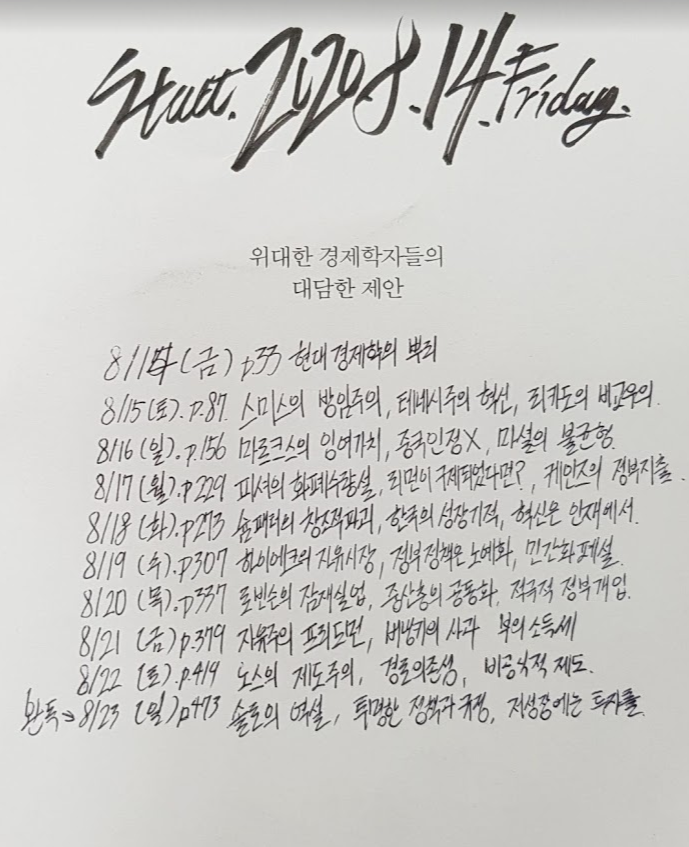 Start. 2020.8.14. Friday.
위대한 경제학자들의
대담한 제안
8/14 (금) p.33 현대경제학의 뿌리
8/15 (토). p.87. 스미스의 방임주의, 테네시주의 혁신, 리카도의 비교우의.
8/16 (일). p.156 마르크스의 잉여가치, 중국인정X, 마셜의 불균형.
8/17 (월). p229 피셔의 화폐수량설, 리먼이 구제되었다면?, 케인즈의 정부지출.
8/18 (화). p273 슘페터의 창조적파괴, 한국의 성장기적, 혁신은 인재에서.
8/19 (수). p307 하이에크의 자유시장, 정부정책은 노예화, 민간화폐설.
8/20 (목). p337 로빈슨의 잠재실업, 중산층의 공동화, 적극적 정부개입.
8/21 (금) p.379 자유주의 프리드먼, 버냉키의 사과 부의소득세
8/22 (토). p.419 노스의 제도주의, 경로의존성, 비공식적 제도.
완독→ 8/23 (일) p473 솔로의 역설, 투명한 정책과 규정, 저성장에는 투자를.